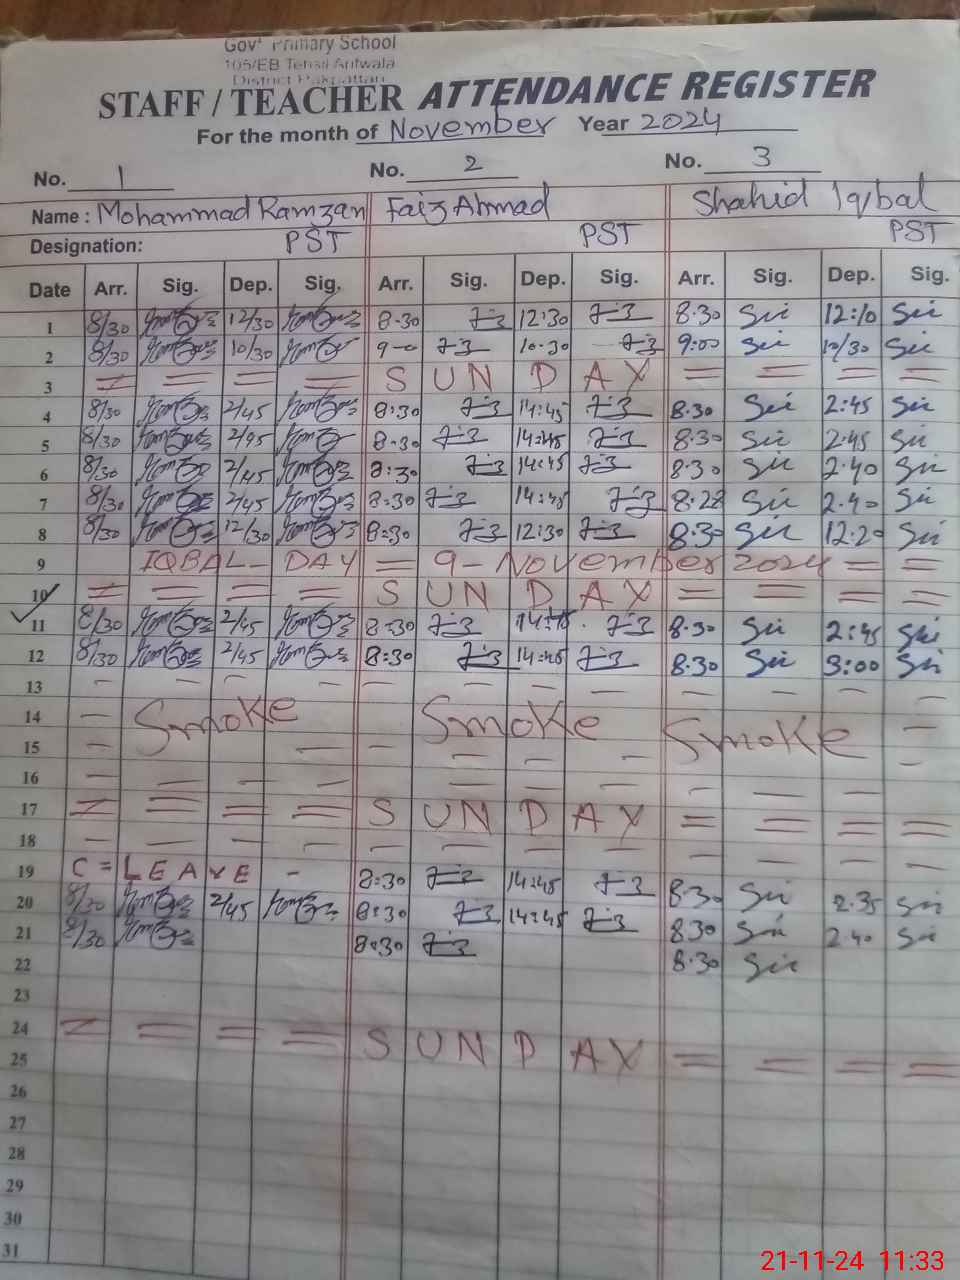 Govt Primary School
105/EB Tehsil Arifwala
District Pakpattan
STAFF / TEACHER ATTENDANCE REGISTER
For the month of November Year 2024
No. 1 No. 2 No. 3
Name : Mohammad Ramzan Faiz Ahmad Shahid Iqbal
Designation: PST PST PST
Date Arr. Sig. Dep. Sig. Arr. Sig. Dep. Sig. Arr. Sig. Dep. Sig.
1 8/30 12/30 8-30 12:30 8.30 12:10
2 8/30 10/30 9-0 10.30 9:00 10/30
3 = = = = S U N D A Y = = = =
4 8/30 2/45 8:30 14:45 8.30 2:45
5 8/30 2/45 8:30 14:45 8.30 2:45
6 8/30 2/45 8:30 14:45 8.30 2.40
7 8/30 2/45 8:30 14:45 8.28 2.40
8 8/30 12/30 8:30 12:30 8.30 12.20
9 IQBAL - DAY = 9 - November 2024 = =
10 = = = = S U N D A Y = = = =
11 8/30 2/45 8:30 14:45 8.30 2:45
12 8/30 2/45 8:30 14:45 8.30 3:00
13
14 Smoke Smoke Smoke
15
16
17 = = = = S U N D A Y = = = =
18
19 C = LEAVE - 8:30 14:45 8.30 2.35
20 8/30 2/45 8:30 14:45 8.30 2.40
21 8/30 8:30 8.30
22
23
24 = = = = S U N D A Y = = = =
25
26
27
28
29
30
31
21-11-24 11:33